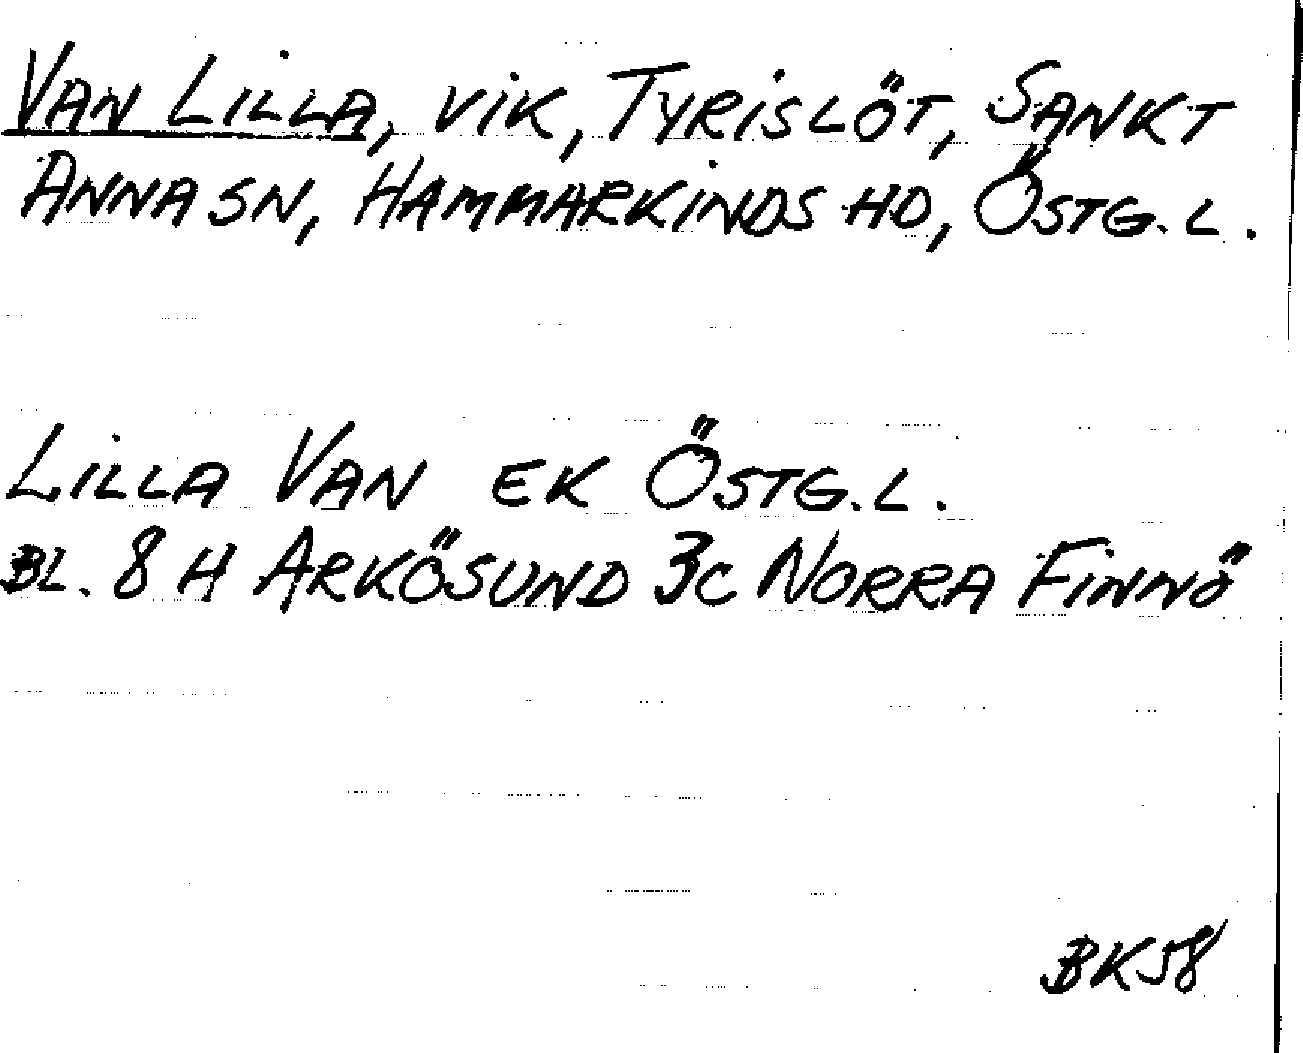 VAN LILLA, VIK, TYRISLÖT, SANKT
ANNA SN, HAMMARKINDS HD, ÖSTG. L.
LILLA VAN EK ÖSTG. L.
BL. 8 H ARKÖSUND 3C NORRA FINNÖ
BK58